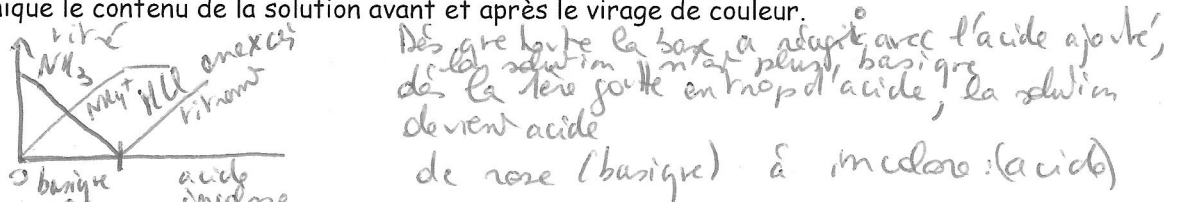 ique le contenu de la solution avant et après le virage de couleur.
titré
NH3
NH4+
HCl en excès
titrant
0 basique
acide
incolore
Dès que toute la base a réagit, avec l'acide ajouté,
la solution n'est plus basique
dés la 1ère goutte en trop d'acide, la solution
devient acide
de rose (basique) à incolore (acide)